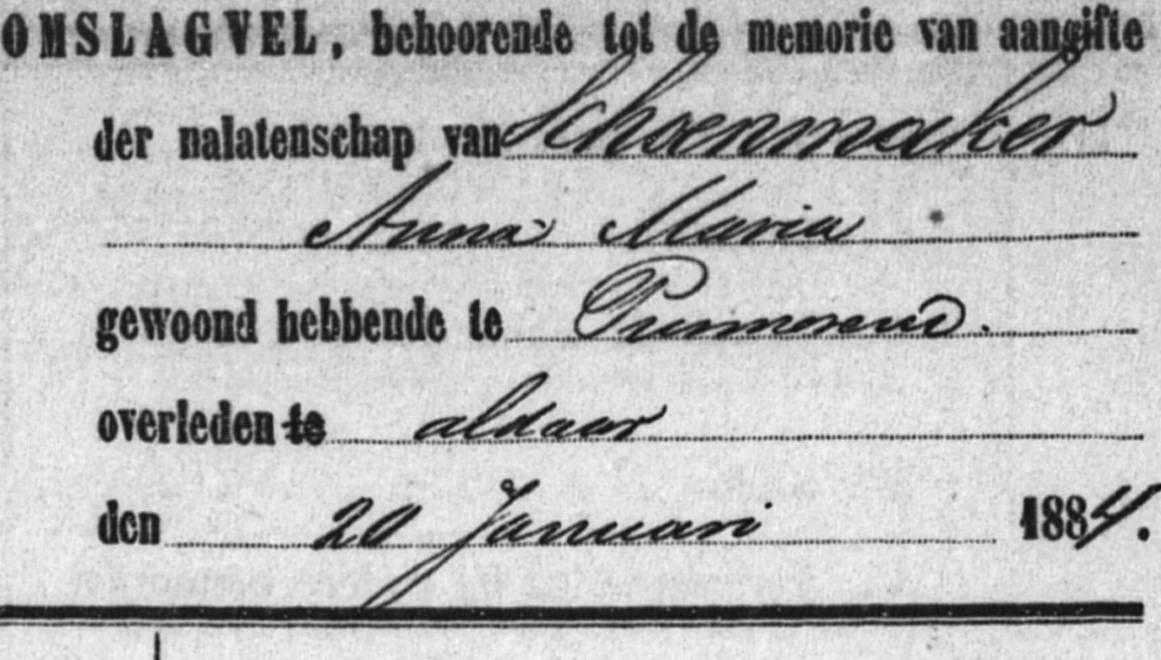 OMSLAGVEL, behoorende tot de memorie van aangifte
der nalatenschap van Schoenmaker
Anna Maria
gewoond hebbende te Purmerend.
overleden te aldaar
den 20 Januari 1884.